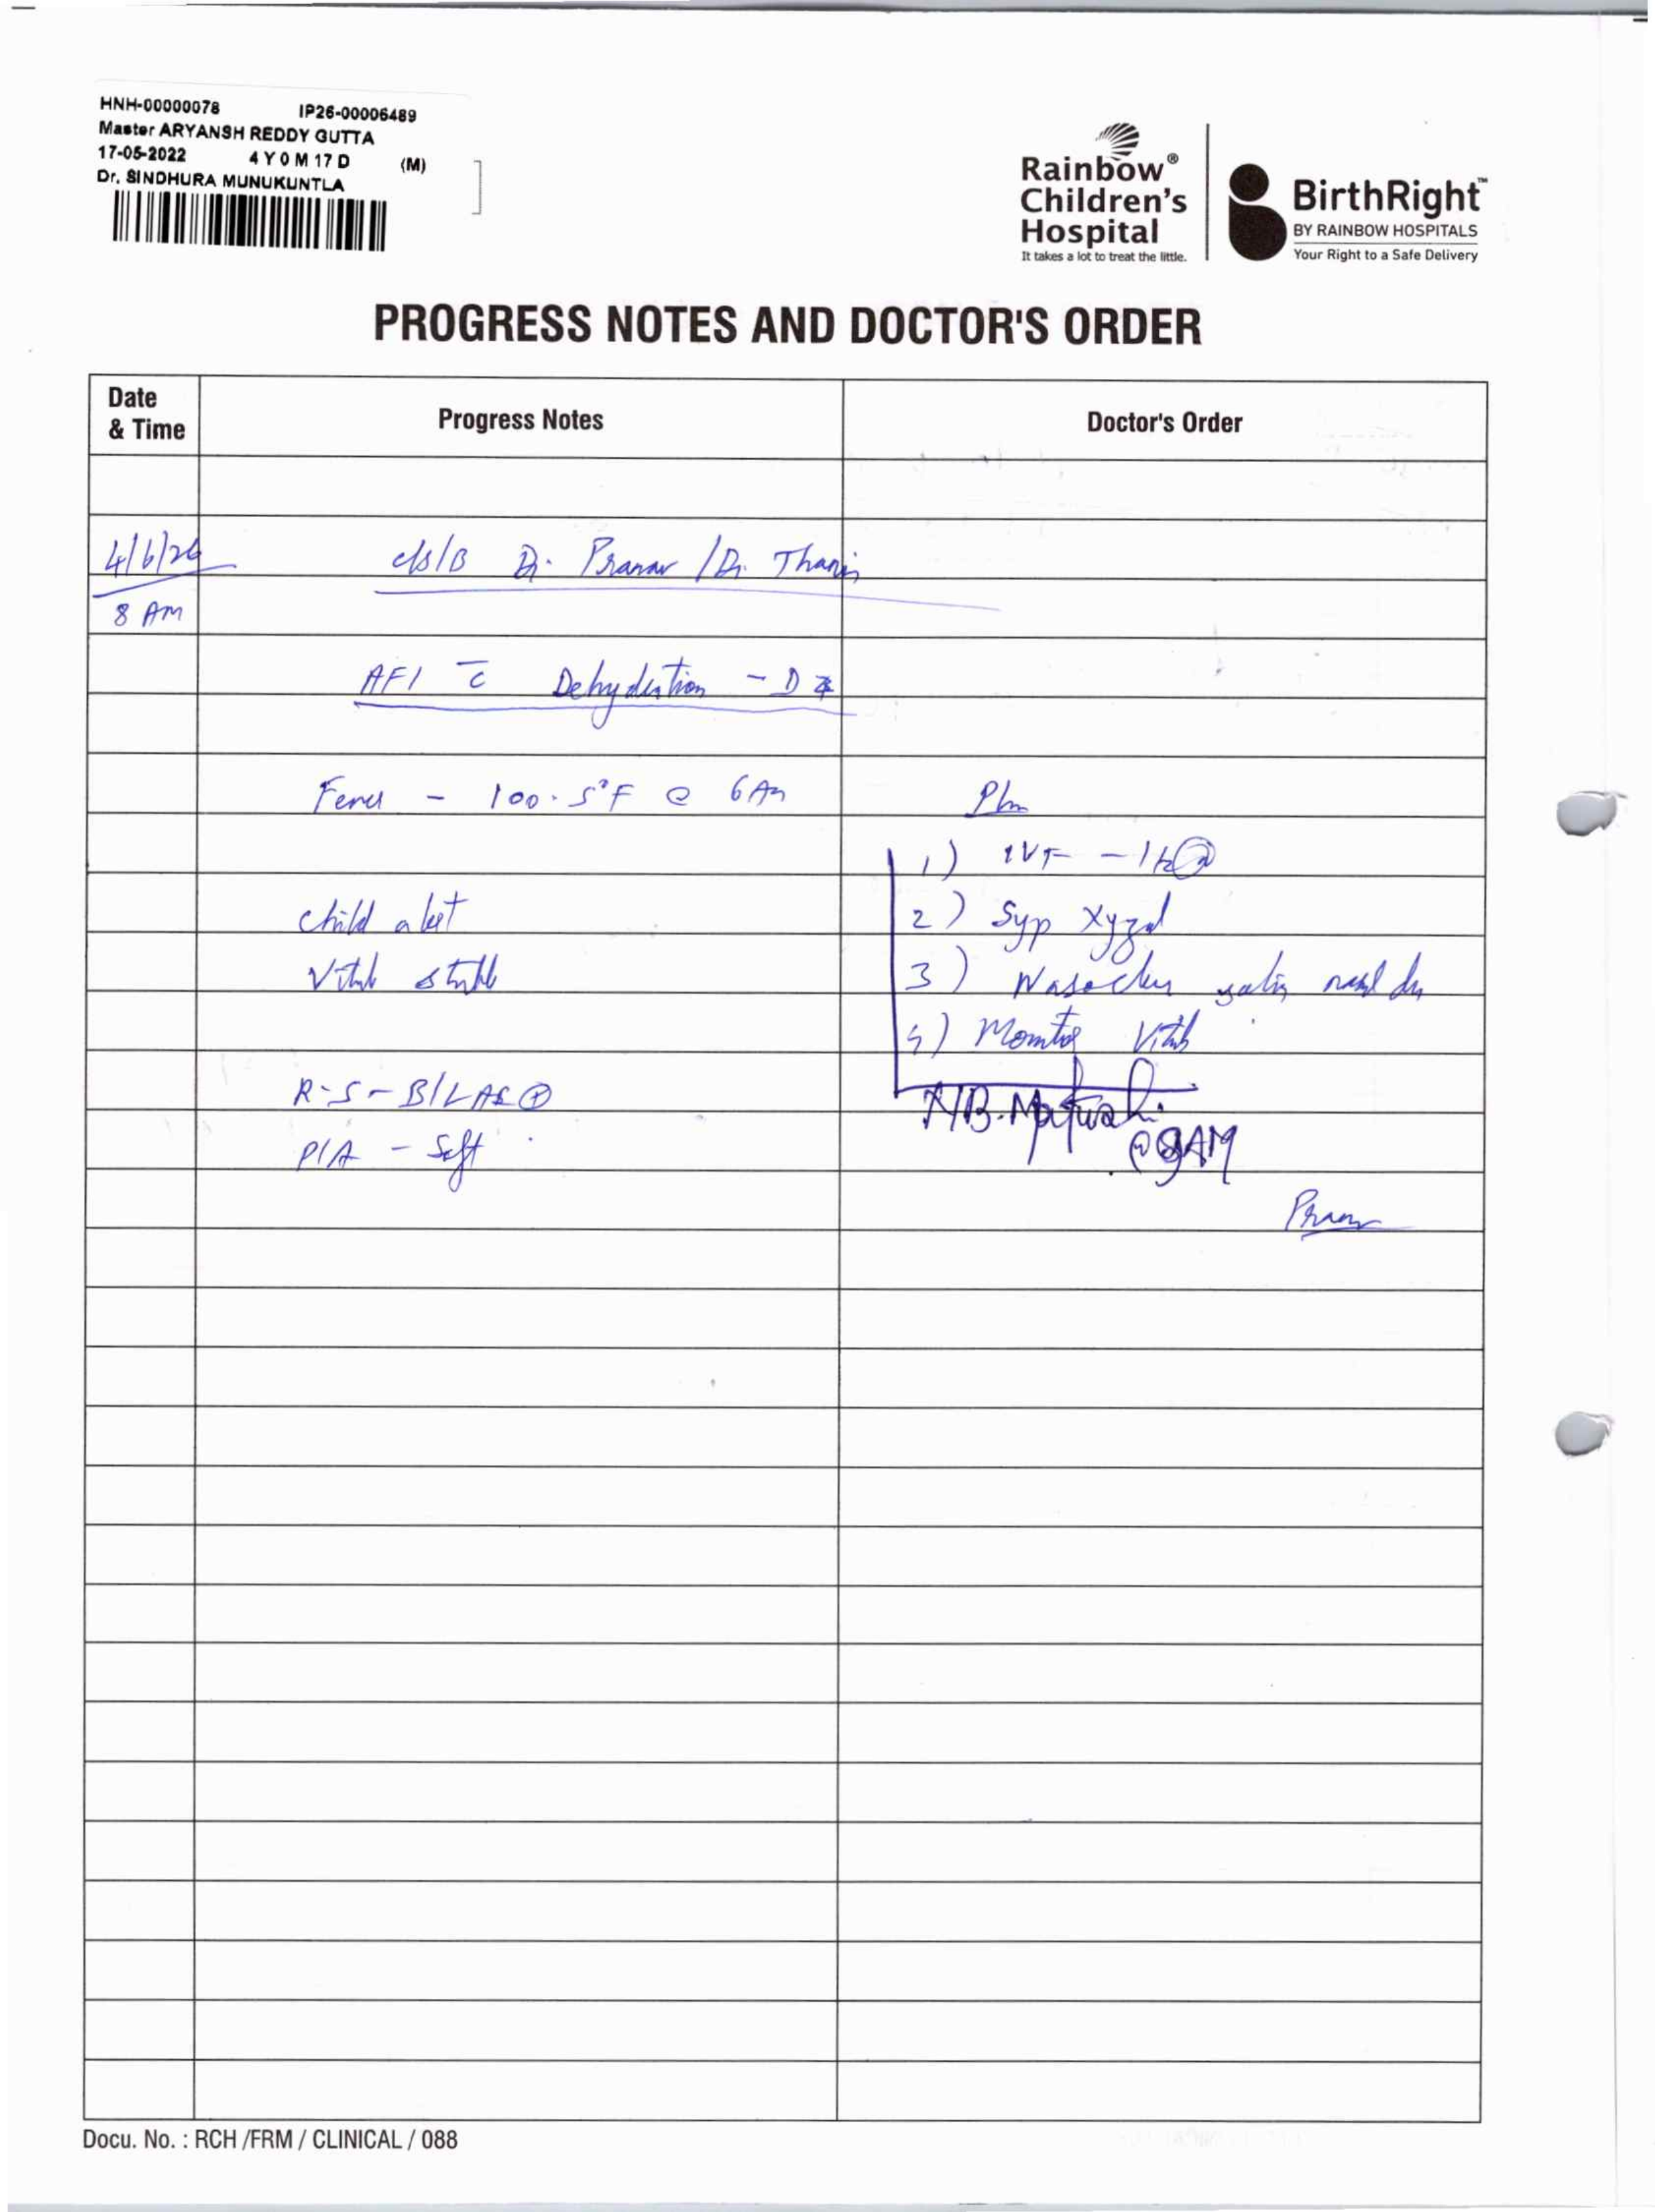 HNH-00000078 IP26-00006489
Master ARYANSH REDDY GUTTA
17-05-2022 4 Y 0 M 17 D (M)
Dr. SINDHURA MUNUKUNTLA
Rainbow®
Children's
Hospital
It takes a lot to treat the little.
BirthRight™
BY RAINBOW HOSPITALS
Your Right to a Safe Delivery
PROGRESS NOTES AND DOCTOR'S ORDER
Date & Time
Progress Notes
Doctor's Order
4/6/26
8 AM
c/s/B Dr. Pranav / Dr.
AFI c̄ Dehydration - D
Fever - 100.5°F @ 6 Am
Plan
1) IVF -
child alert
2) Syp Xyzal
Vitals stable
3) nasal
4) Monitor Vitals
R-S - B/L AE ⊕
N/B.
@ 8AM
P/A - Soft
Pranav
Docu. No. : RCH /FRM / CLINICAL / 088